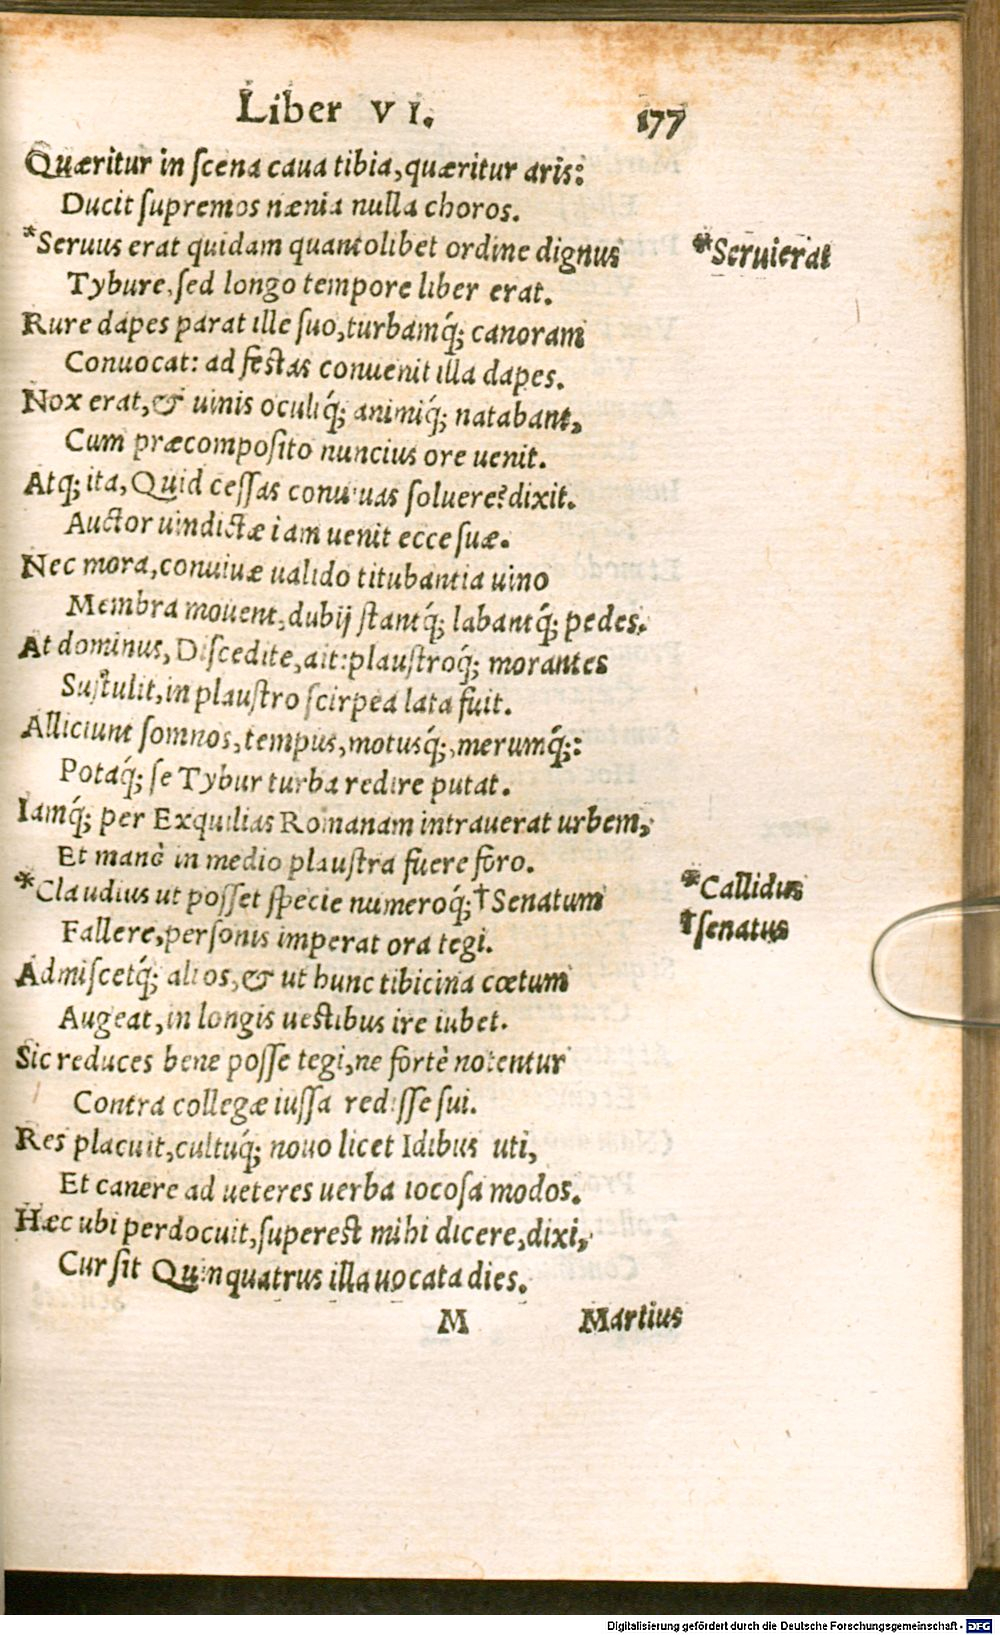 Liber VI. 177
Quæritur in ſcena caua tibia, quæritur aris:
Ducit ſupremos nænia nulla choros.
*Seruus erat quidam quantolibet ordine dignus *Seruierat
Tybure, ſed longo tempore liber erat.
Rure dapes parat ille ſuo, turbamq́; canoram
Conuocat: ad feſtas conuenit illa dapes.
Nox erat, & uinis oculiq́; animiq́; natabant,
Cum præcompoſito nuncius ore uenit.
Atq; ita, Quid ceſſas conuiuas ſoluere? dixit.
Auctor uindictæ iam uenit ecce ſuæ.
Nec mora, conuiuæ ualido titubantia uino
Membra mouent, dubij ſtantq́; labantq́; pedes.
At dominus, Diſcedite, ait: plauſtroq́; morantes
Suſtulit, in plauſtro ſcirpea lata fuit.
Alliciunt ſomnos, tempus, motusq́;, merumq́;:
Potaq́; ſe Tybur turba redire putat.
Iamq́; per Exquilias Romanam intrauerat urbem,
Et manè in medio plauſtra fuere foro.
*Claudius ut poſſet ſpecie numeroq́; †Senatum *Callidus
Fallere, perſonis imperat ora tegi. †ſenatus
Admiſcetq́; alios, & ut hunc tibicina cœtum
Augeat, in longis ueſtibus ire iubet.
Sic reduces bene poſſe tegi, ne fortè notentur
Contra collegæ iuſſa rediſſe ſui.
Res placuit, cultuq́; nouo licet Idibus uti,
Et canere ad ueteres uerba iocoſa modos.
Hæc ubi perdocuit, ſupereſt mihi dicere, dixi,
Cur ſit Quinquatrus illa uocata dies.
M Martius
Digitalisierung gefördert durch die Deutsche Forschungsgemeinschaft - DFG